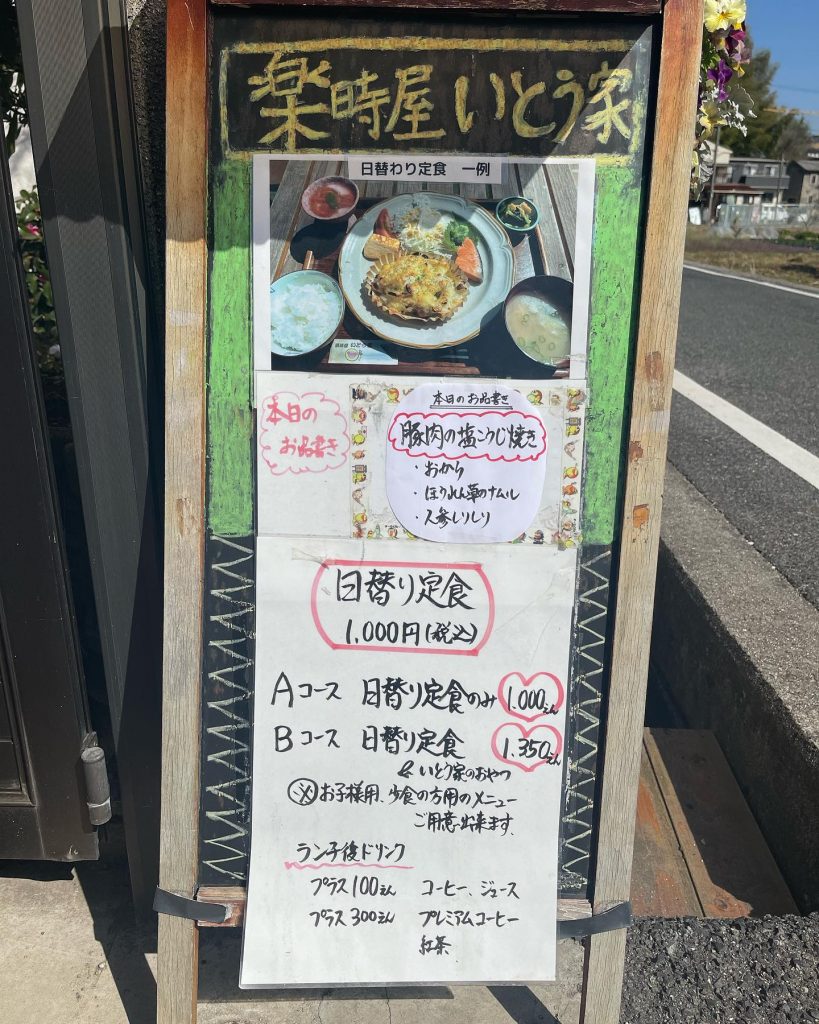 楽時屋 いとう家
日替わり定食 一例
本日の
お品書き
本日のお品書き
豚肉の塩こうじ焼き
・おから
・ほうれん草のナムル
・人参しりしり
日替り定食
1.000円(税込)
Aコース 日替り定食のみ 1.000えん
Bコース 日替り定食 1.350えん
& いとう家のおやつ
※お子様用、少食の方用のメニュー
ご用意出来ます。
ランチ後ドリンク
プラス100えん コーヒー、ジュース
プラス300えん プレミアムコーヒー
紅茶